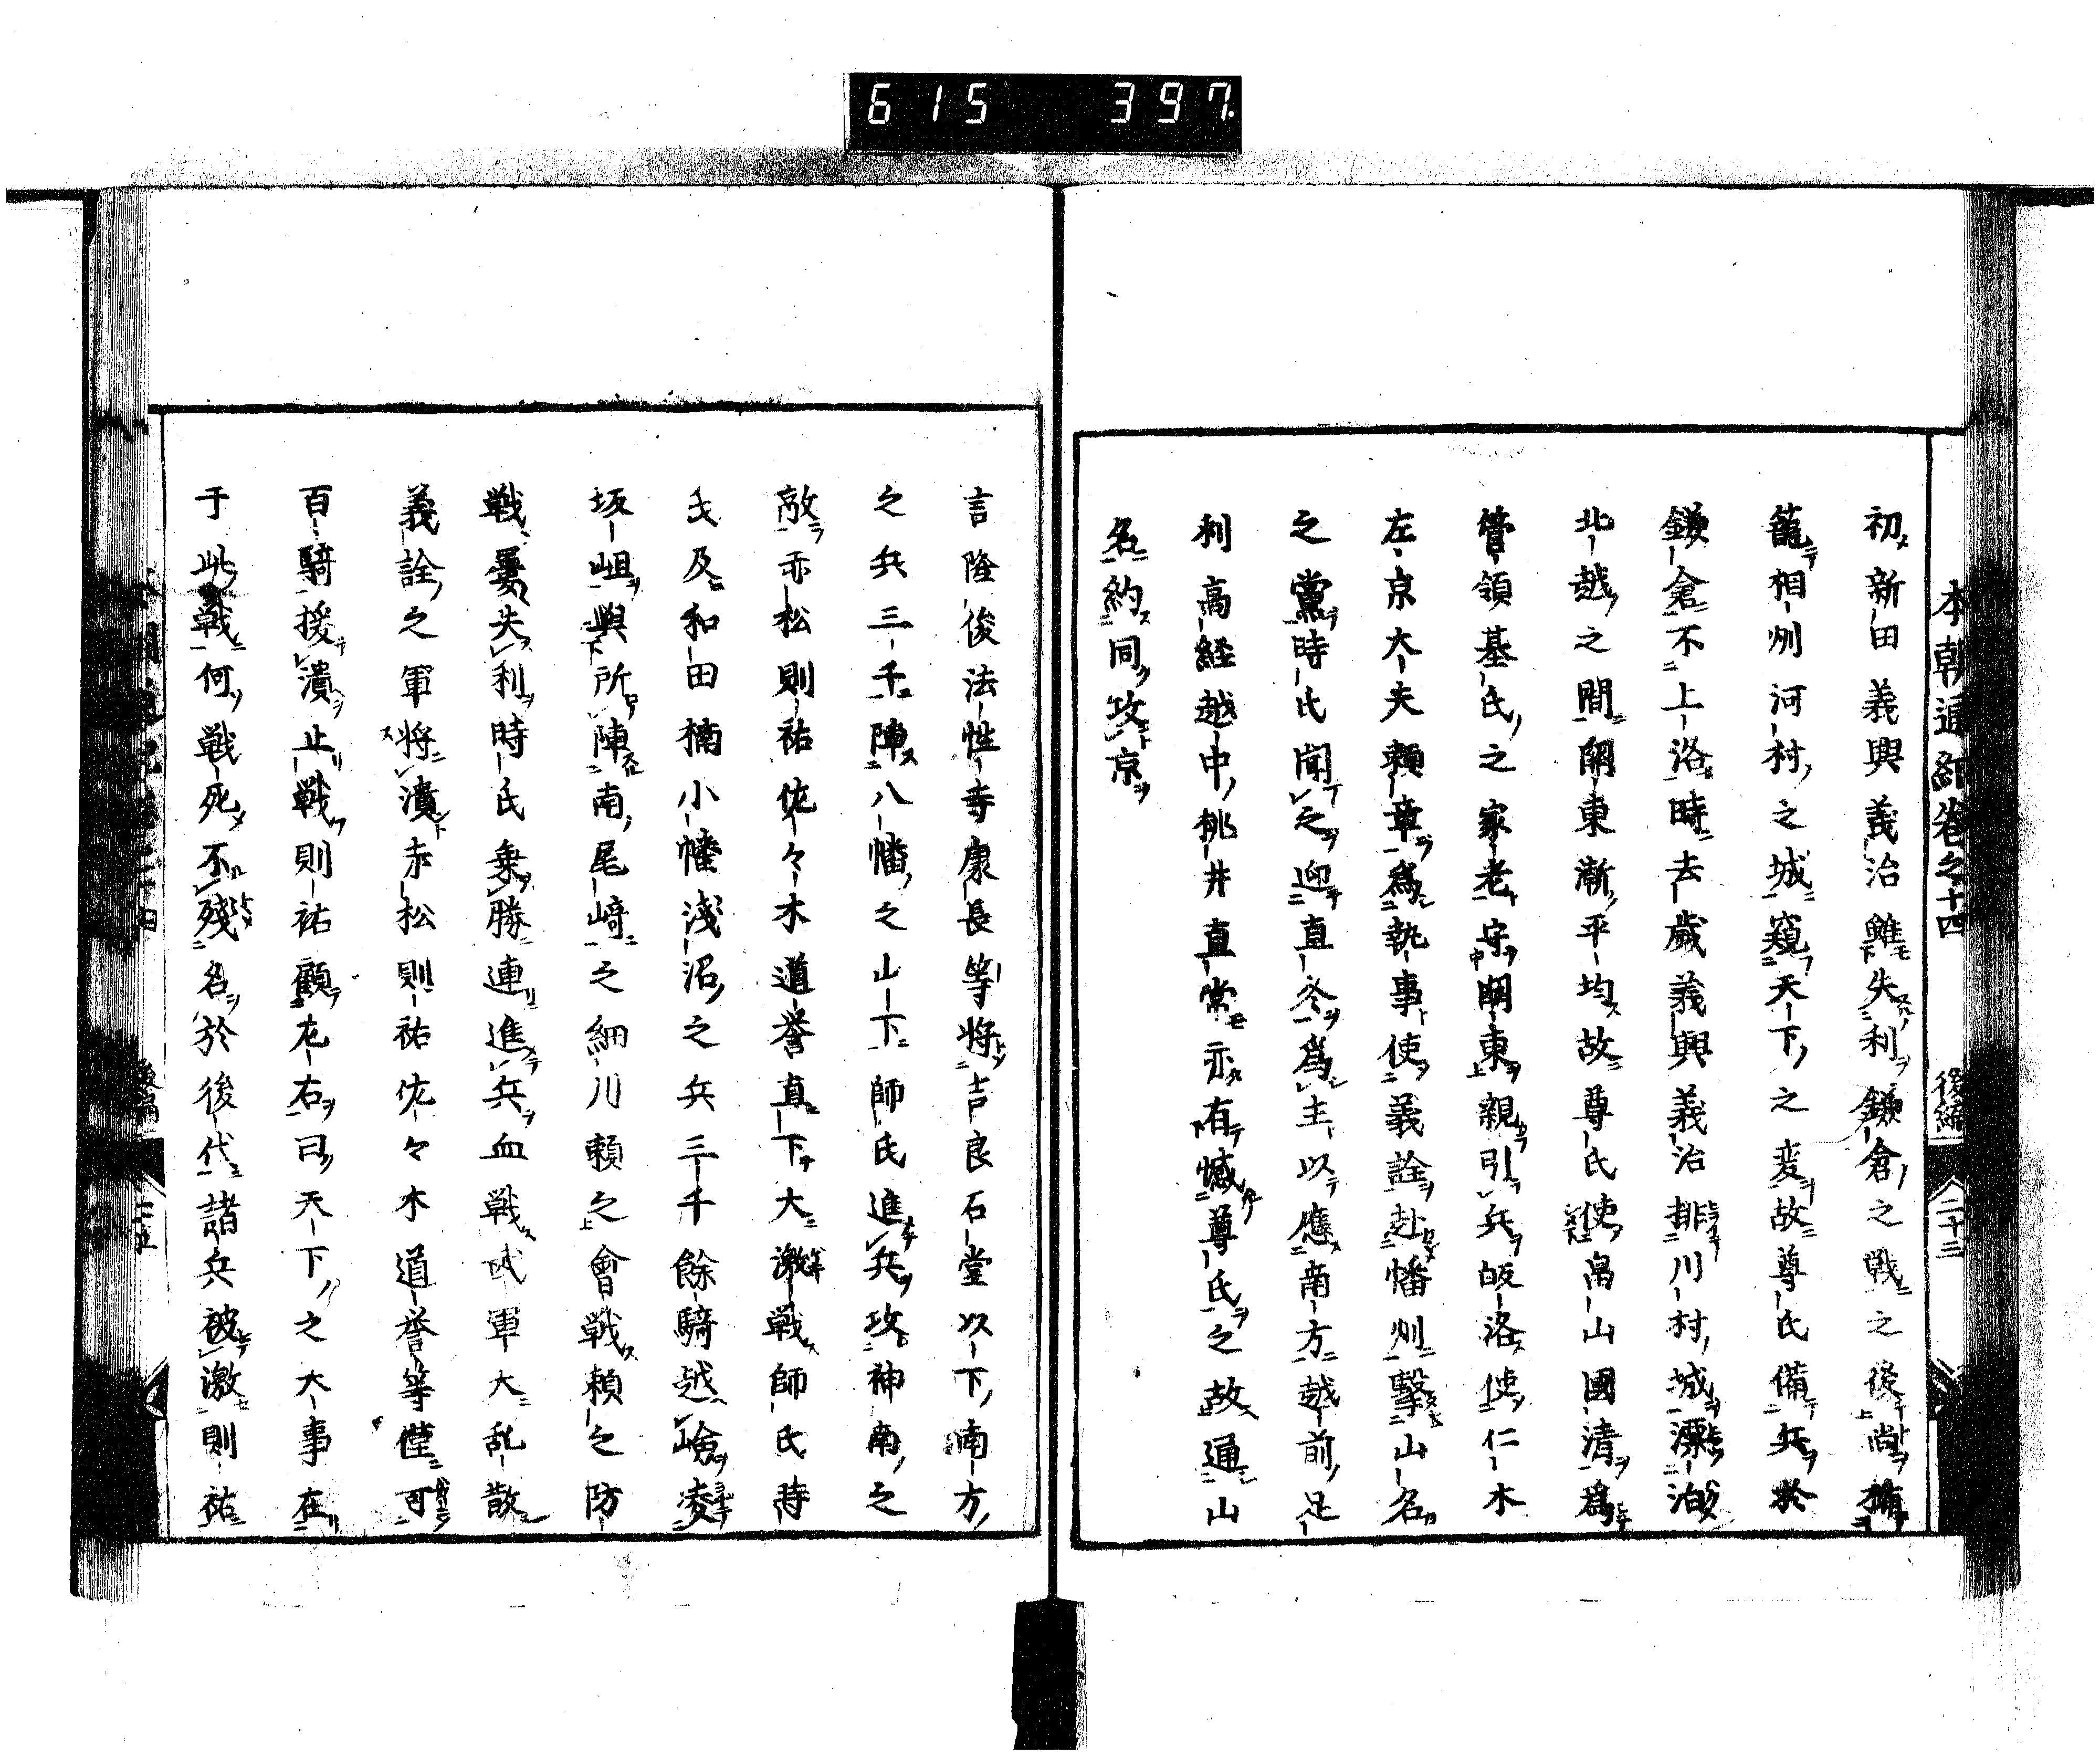 615 397
本朝通紀卷之十四 後編 二十三
初新田義興義治雖失利鎌倉之戦之後尚楯
籠相州河村之城窺天下之変故尊氏備兵於
鎌倉不上洛時去歳義興義治排川村城漂泊
北越之間關東漸平均故尊氏使畠山國清爲
管領基氏之家老守關東親引兵皈洛使仁木
左京大夫頼章爲執事使義詮赴幡州擊山名
之黨時氏聞之迎直冬爲主以應南方越前足
利高経越中桃井直常亦有憾尊氏之故通山
名約同攻京
言隆俊法性寺康長等将吉良石堂以下南方
之兵三千陣八幡之山下師氏進兵攻神南之
敵赤松則祐佐々木道誉直下大激戦師氏時
氏及和田楠小幡淺沼之兵三千餘騎越嶮凌
坂岨與所陣南尾﨑之細川頼之會戦頼之防
戦屢失利時氏乗勝連進兵血戦武軍大乱散
義詮之軍将潰赤松則祐佐々木道誉等僅可
百騎援潰止戦則祐顧左右曰天下之大事在
于此戦何戦死不殘名於後代諸兵被激則祐